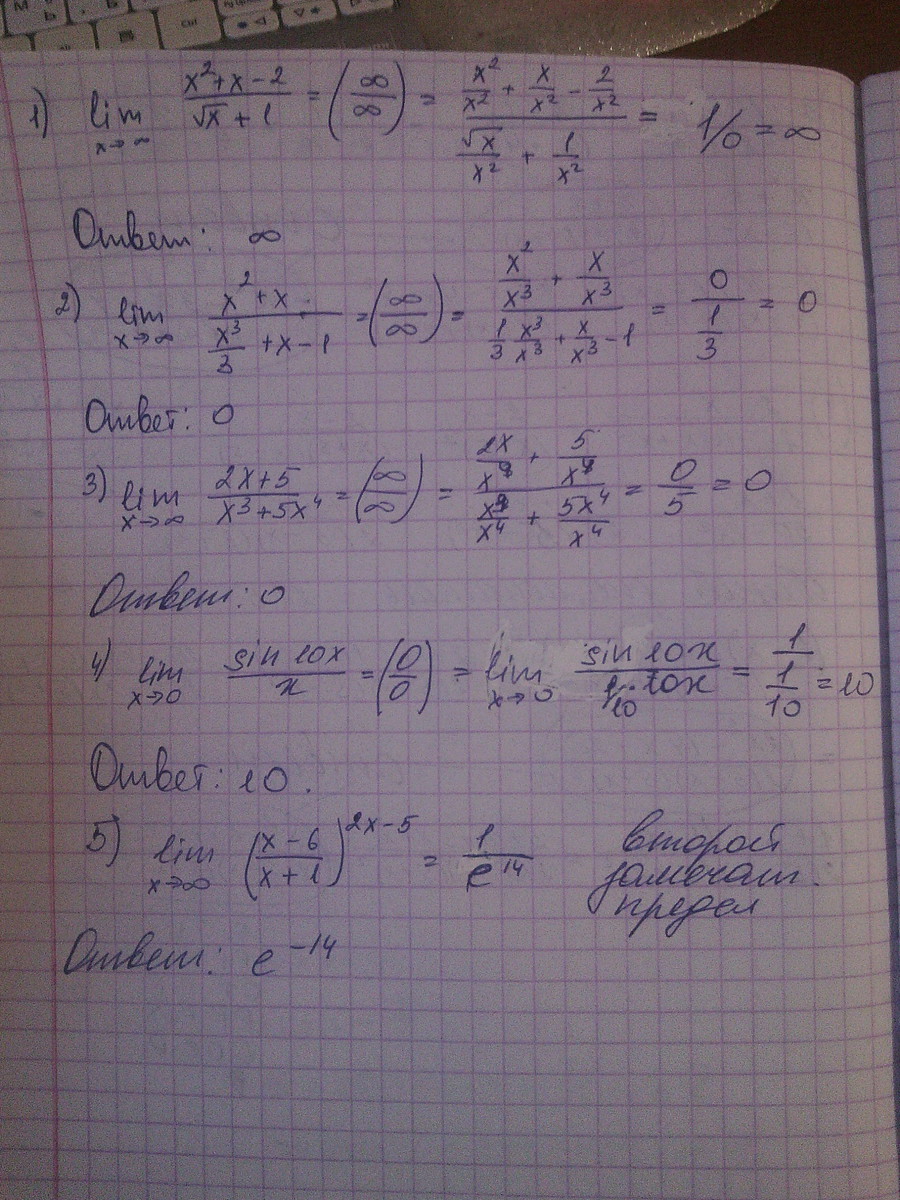 1) lim x→∞ (x²+x−2)/(√x+1) = (∞/∞) = (x²/x² + x/x² − 2/x²)/(√x/x² + 1/x²) = 1/0 = ∞
Ответ: ∞
2) lim x→∞ (x²+x)/(x³/3 +x−1) = (∞/∞) = (x²/x³ + x/x³)/(1/3 x³/x³ + x/x³ − 1) = 0/(1/3) = 0
Ответ: 0
3) lim x→∞ (2x+5)/(x³+5x⁴) = (∞/∞) = (2x/x⁴ + 5/x⁴)/(x³/x⁴ + 5x⁴/x⁴) = 0/5 = 0
Ответ: 0
4) lim x→0 sin10x/x = (0/0) = lim x→0 sin10x/(1/10·10x) = 1/(1/10) = 10
Ответ: 10.
5) lim x→∞ ((x−6)/(x+1))^(2x−5) = 1/e¹⁴ второй
замечат.
предел
Ответ: e⁻¹⁴